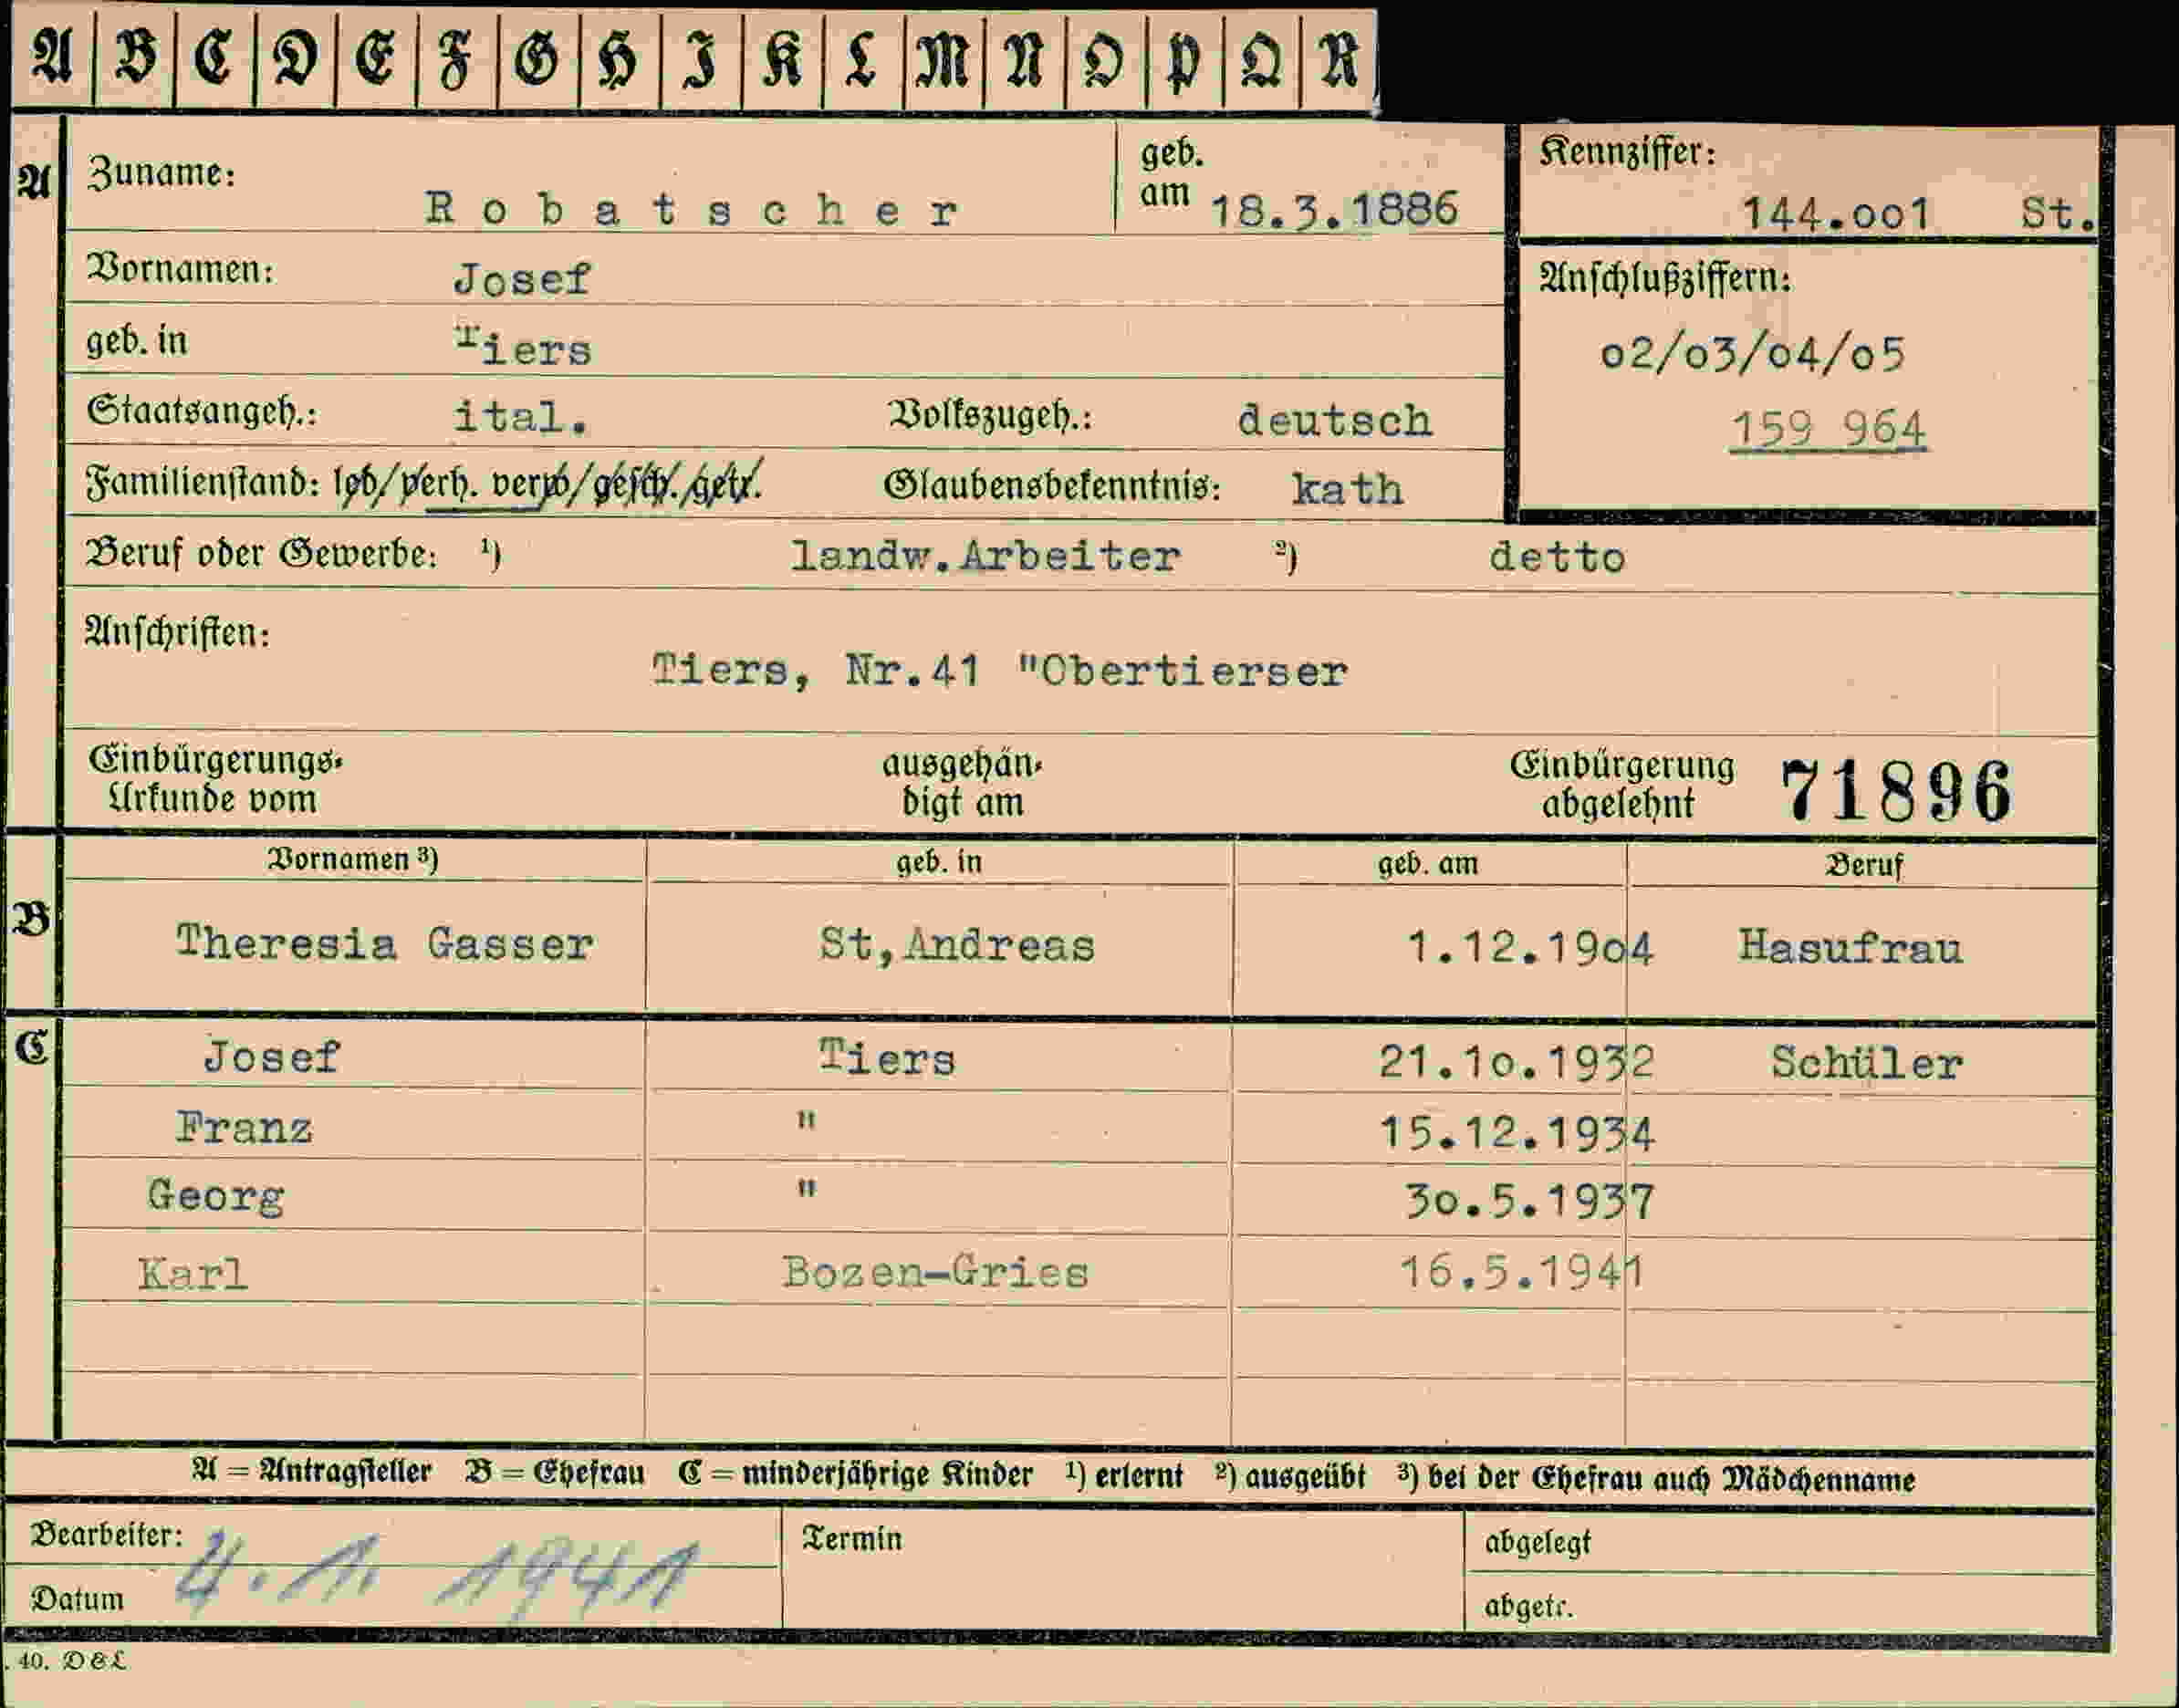 A B C D E F G H I K L M N O P Q R
A Zuname: Robatscher geb. am 18.3.1886
Kennziffer: 144.oo1 St.
Vornamen: Josef
Anschlußziffern:
geb. in Tiers
o2/o3/o4/o5
Staatsangeh.: ital. Volkszugeh.: deutsch
159 964
Familienstand: led/verh. verw/gesch./getr. Glaubensbekenntnis: kath
Beruf oder Gewerbe: ¹) landw.Arbeiter ²) detto
Anschriften:
Tiers, Nr.41 "Obertierser
Einbürgerungs-
Urkunde vom
ausgehän-
digt am
Einbürgerung
abgelehnt
71896
Vornamen ³) geb. in geb. am Beruf
B Theresia Gasser St,Andreas 1.12.19o4 Hasufrau
C Josef Tiers 21.1o.1932 Schüler
Franz " 15.12.1934
Georg " 3o.5.1937
Karl Bozen-Gries 16.5.1941
A = Antragsteller B = Ehefrau C = minderjährige Kinder ¹) erlernt ²) ausgeübt ³) bei der Ehefrau auch Mädchenname
Bearbeiter: Termin abgelegt
4.1. 1941
Datum abgetr.
. 40. D & L